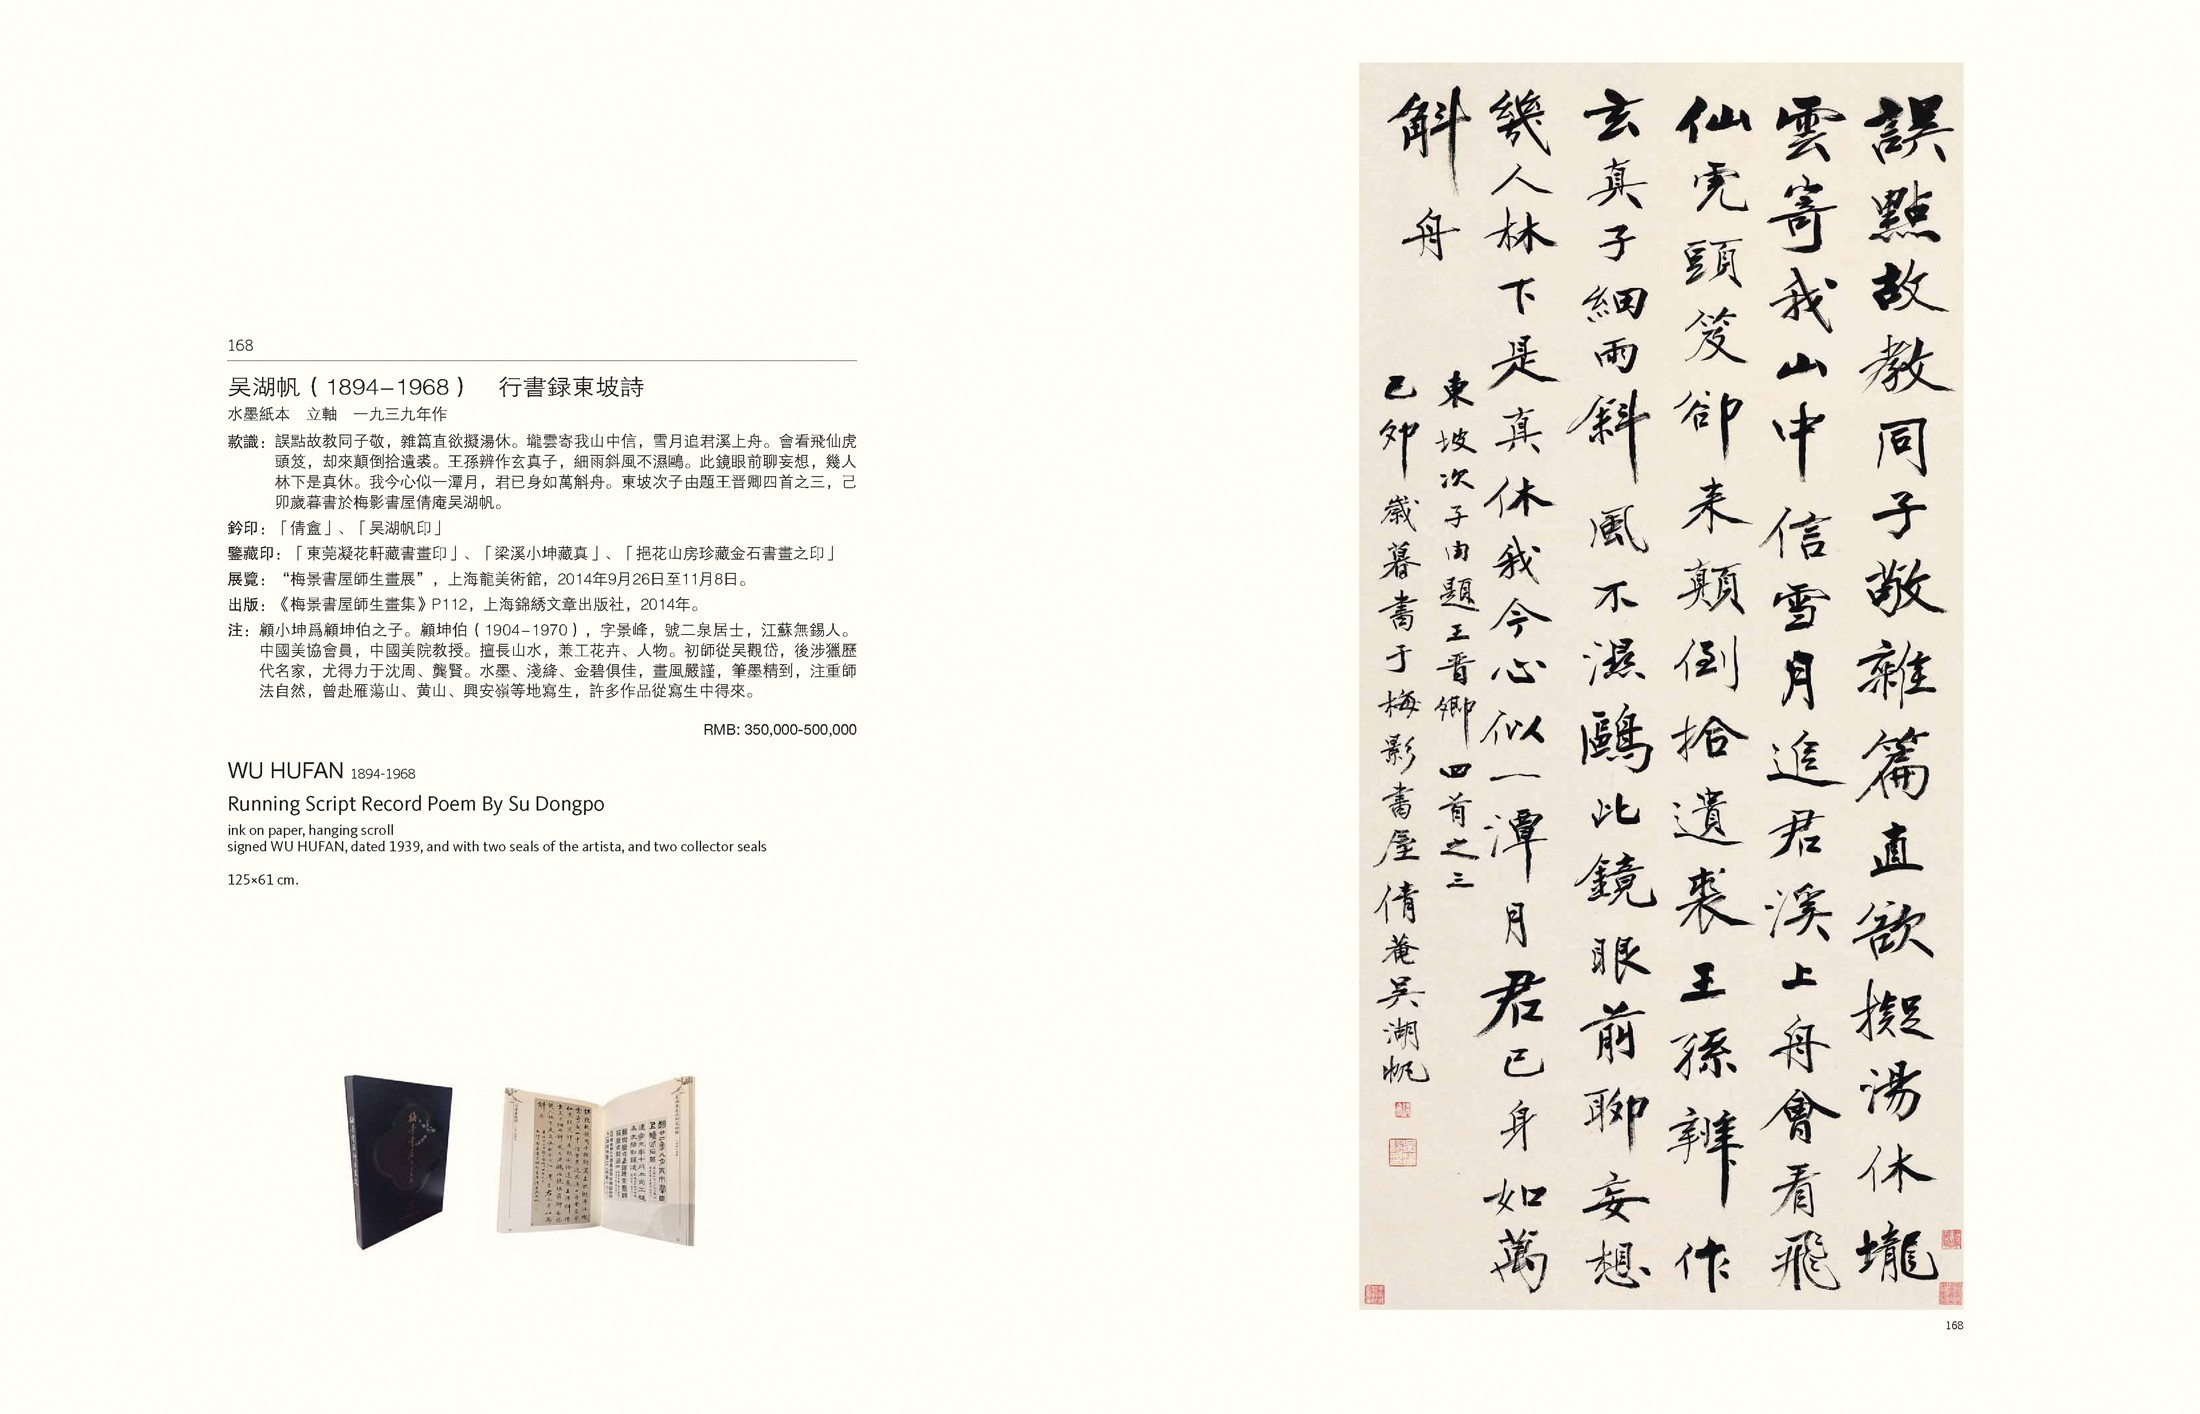 168
吴湖帆（1894–1968） 行書録東坡詩
水墨紙本 立軸 一九三九年作
款識：誤點故教同子敬，雜篇直欲擬湯休。壠雲寄我山中信，雪月追君溪上舟。會看飛仙虎
頭笈，却來顛倒拾遺裘。王孫辨作玄真子，細雨斜風不濕鷗。此鏡眼前聊妄想，幾人
林下是真休。我今心似一潭月，君已身如萬斛舟。東坡次子由題王晋卿四首之三，己
卯歲暮書於梅影書屋倩庵吴湖帆。
鈐印：「倩盦」、「吴湖帆印」
鑒藏印：「東莞凝花軒藏書畫印」、「梁溪小坤藏真」、「挹花山房珍藏金石書畫之印」
展覽：“梅景書屋師生畫展”，上海龍美術館，2014年9月26日至11月8日。
出版：《梅景書屋師生畫集》P112，上海錦綉文章出版社，2014年。
注：顧小坤爲顧坤伯之子。顧坤伯（1904–1970），字景峰，號二泉居士，江蘇無錫人。
中國美協會員，中國美院教授。擅長山水，兼工花卉、人物。初師從吴觀岱，後涉獵歷
代名家，尤得力于沈周、龔賢。水墨、淺絳、金碧俱佳，畫風嚴謹，筆墨精到，注重師
法自然，曾赴雁蕩山、黄山、興安嶺等地寫生，許多作品從寫生中得來。
RMB: 350,000-500,000
WU HUFAN 1894-1968
Running Script Record Poem By Su Dongpo
ink on paper, hanging scroll
signed WU HUFAN, dated 1939, and with two seals of the artista, and two collector seals
125×61 cm.
誤點故教同子敬雜篇直欲擬湯休壠
雲寄我山中信雪月追君溪上舟會看飛
仙虎頭笈卻來顛倒拾遺裘王孫辨作
玄真子細雨斜風不濕鷗此鏡眼前聊妄想
幾人林下是真休我今心似一潭月君已身如萬
斛舟
東坡次子由題王晋卿四首之三
己卯歲暮書于梅影書屋倩菴吴湖帆
168